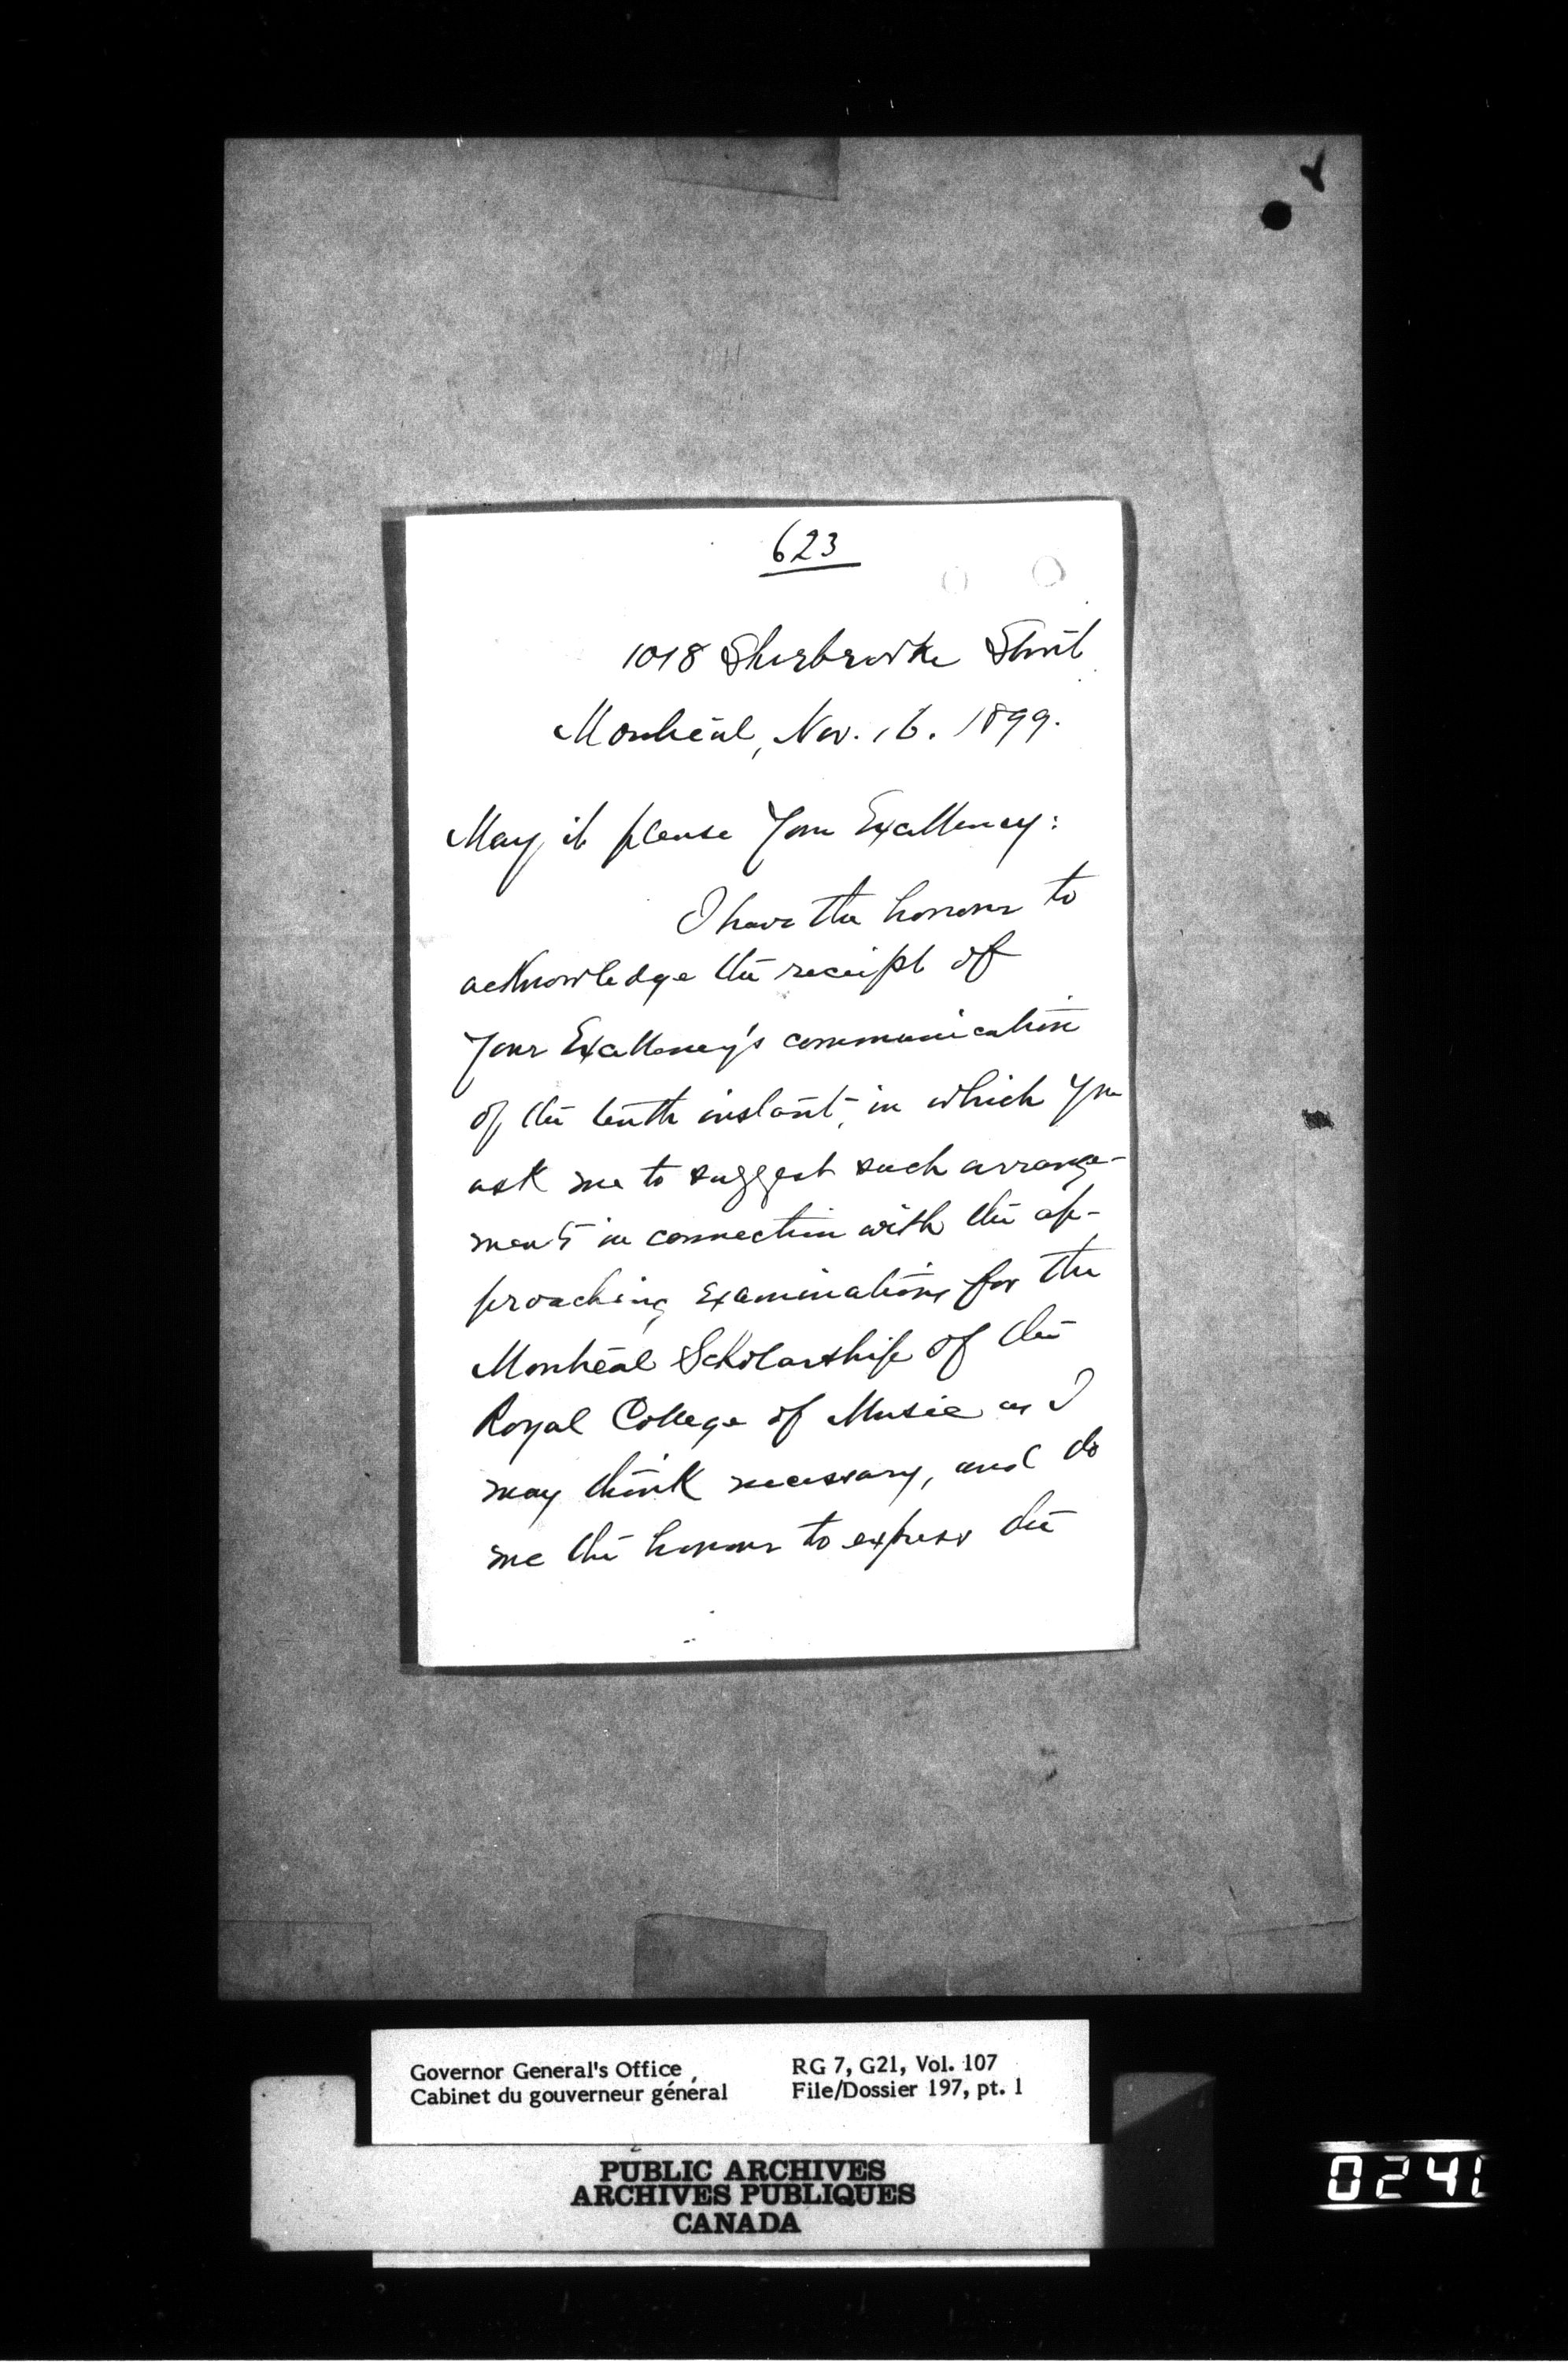 623
1018 Sherbrooke Street
Montreal, Nov. 16. 1899.
May it please Your Excellency:
I have the honour to
acknowledge the receipt of
Your Excellency's communication
of the tenth instant, in which you
ask me to suggest such arrange-
ments in connection with the ap-
proaching examinations for the
Montreal Scholarship of the
Royal College of Music as I
may think necessary, and do
me the honour to express the
Governor General's Office
Cabinet du gouverneur général
RG 7, G21, Vol. 107
File/Dossier 197, pt. 1
PUBLIC ARCHIVES
ARCHIVES PUBLIQUES
CANADA
0241